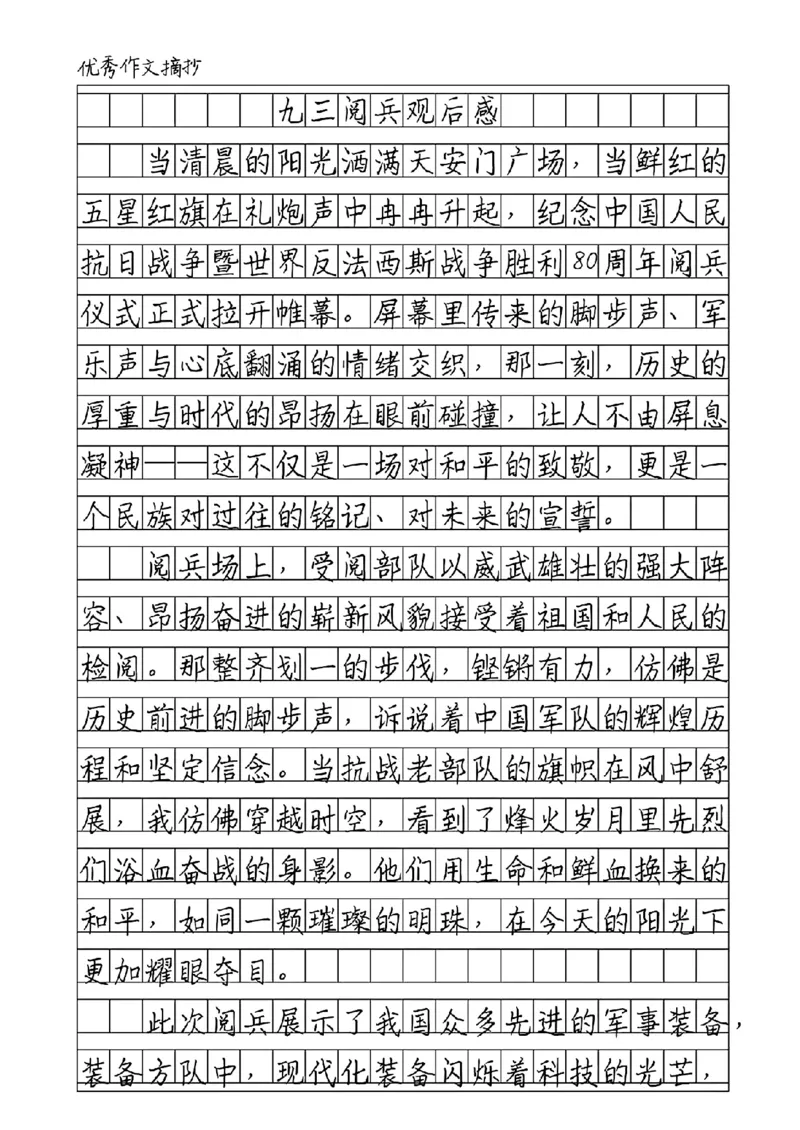 优秀作文摘抄
九三阅兵观后感
当清晨的阳光洒满天安门广场，当鲜红的
五星红旗在礼炮声中冉冉升起，纪念中国人民
抗日战争暨世界反法西斯战争胜利80周年阅兵
仪式正式拉开帷幕。屏幕里传来的脚步声、军
乐声与心底翻涌的情绪交织，那一刻，历史的
厚重与时代的昂扬在眼前碰撞，让人不由屏息
凝神——这不仅是一场对和平的致敬，更是一
个民族对过往的铭记、对未来的宣誓。
阅兵场上，受阅部队以威武雄壮的强大阵
容、昂扬奋进的崭新风貌接受着祖国和人民的
检阅。那整齐划一的步伐，铿锵有力，仿佛是
历史前进的脚步声，诉说着中国军队的辉煌历
程和坚定信念。当抗战老部队的旗帜在风中舒
展，我仿佛穿越时空，看到了烽火岁月里先烈
们浴血奋战的身影。他们用生命和鲜血换来的
和平，如同一颗璀璨的明珠，在今天的阳光下
更加耀眼夺目。
此次阅兵展示了我国众多先进的军事装备，
装备方队中，现代化装备闪烁着科技的光芒，